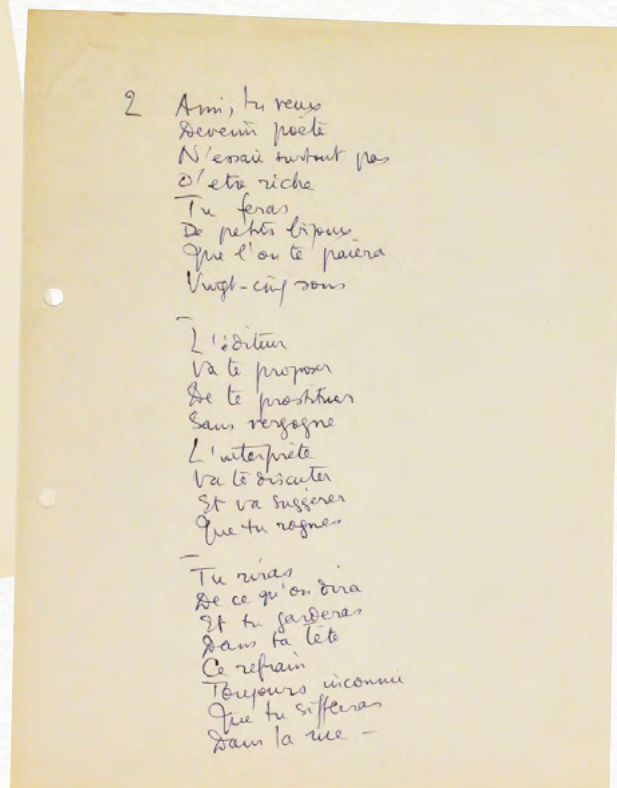 2 Ami, tu veux
Devenir poète
N'essaie surtout pas
D'être riche
Tu feras
De petits bijoux
Que l'on te paiera
Vingt-cinq sous
–
L'éditeur
Va te proposer
De te prostituer
Sans vergogne
L'interprète
Va te discuter
Et va suggérer
Que tu rognes
–
Tu riras
De ce qu'on dira
Et tu garderas
Dans ta tête
Ce refrain
Toujours inconnu
Que tu siffleras
Dans la rue –